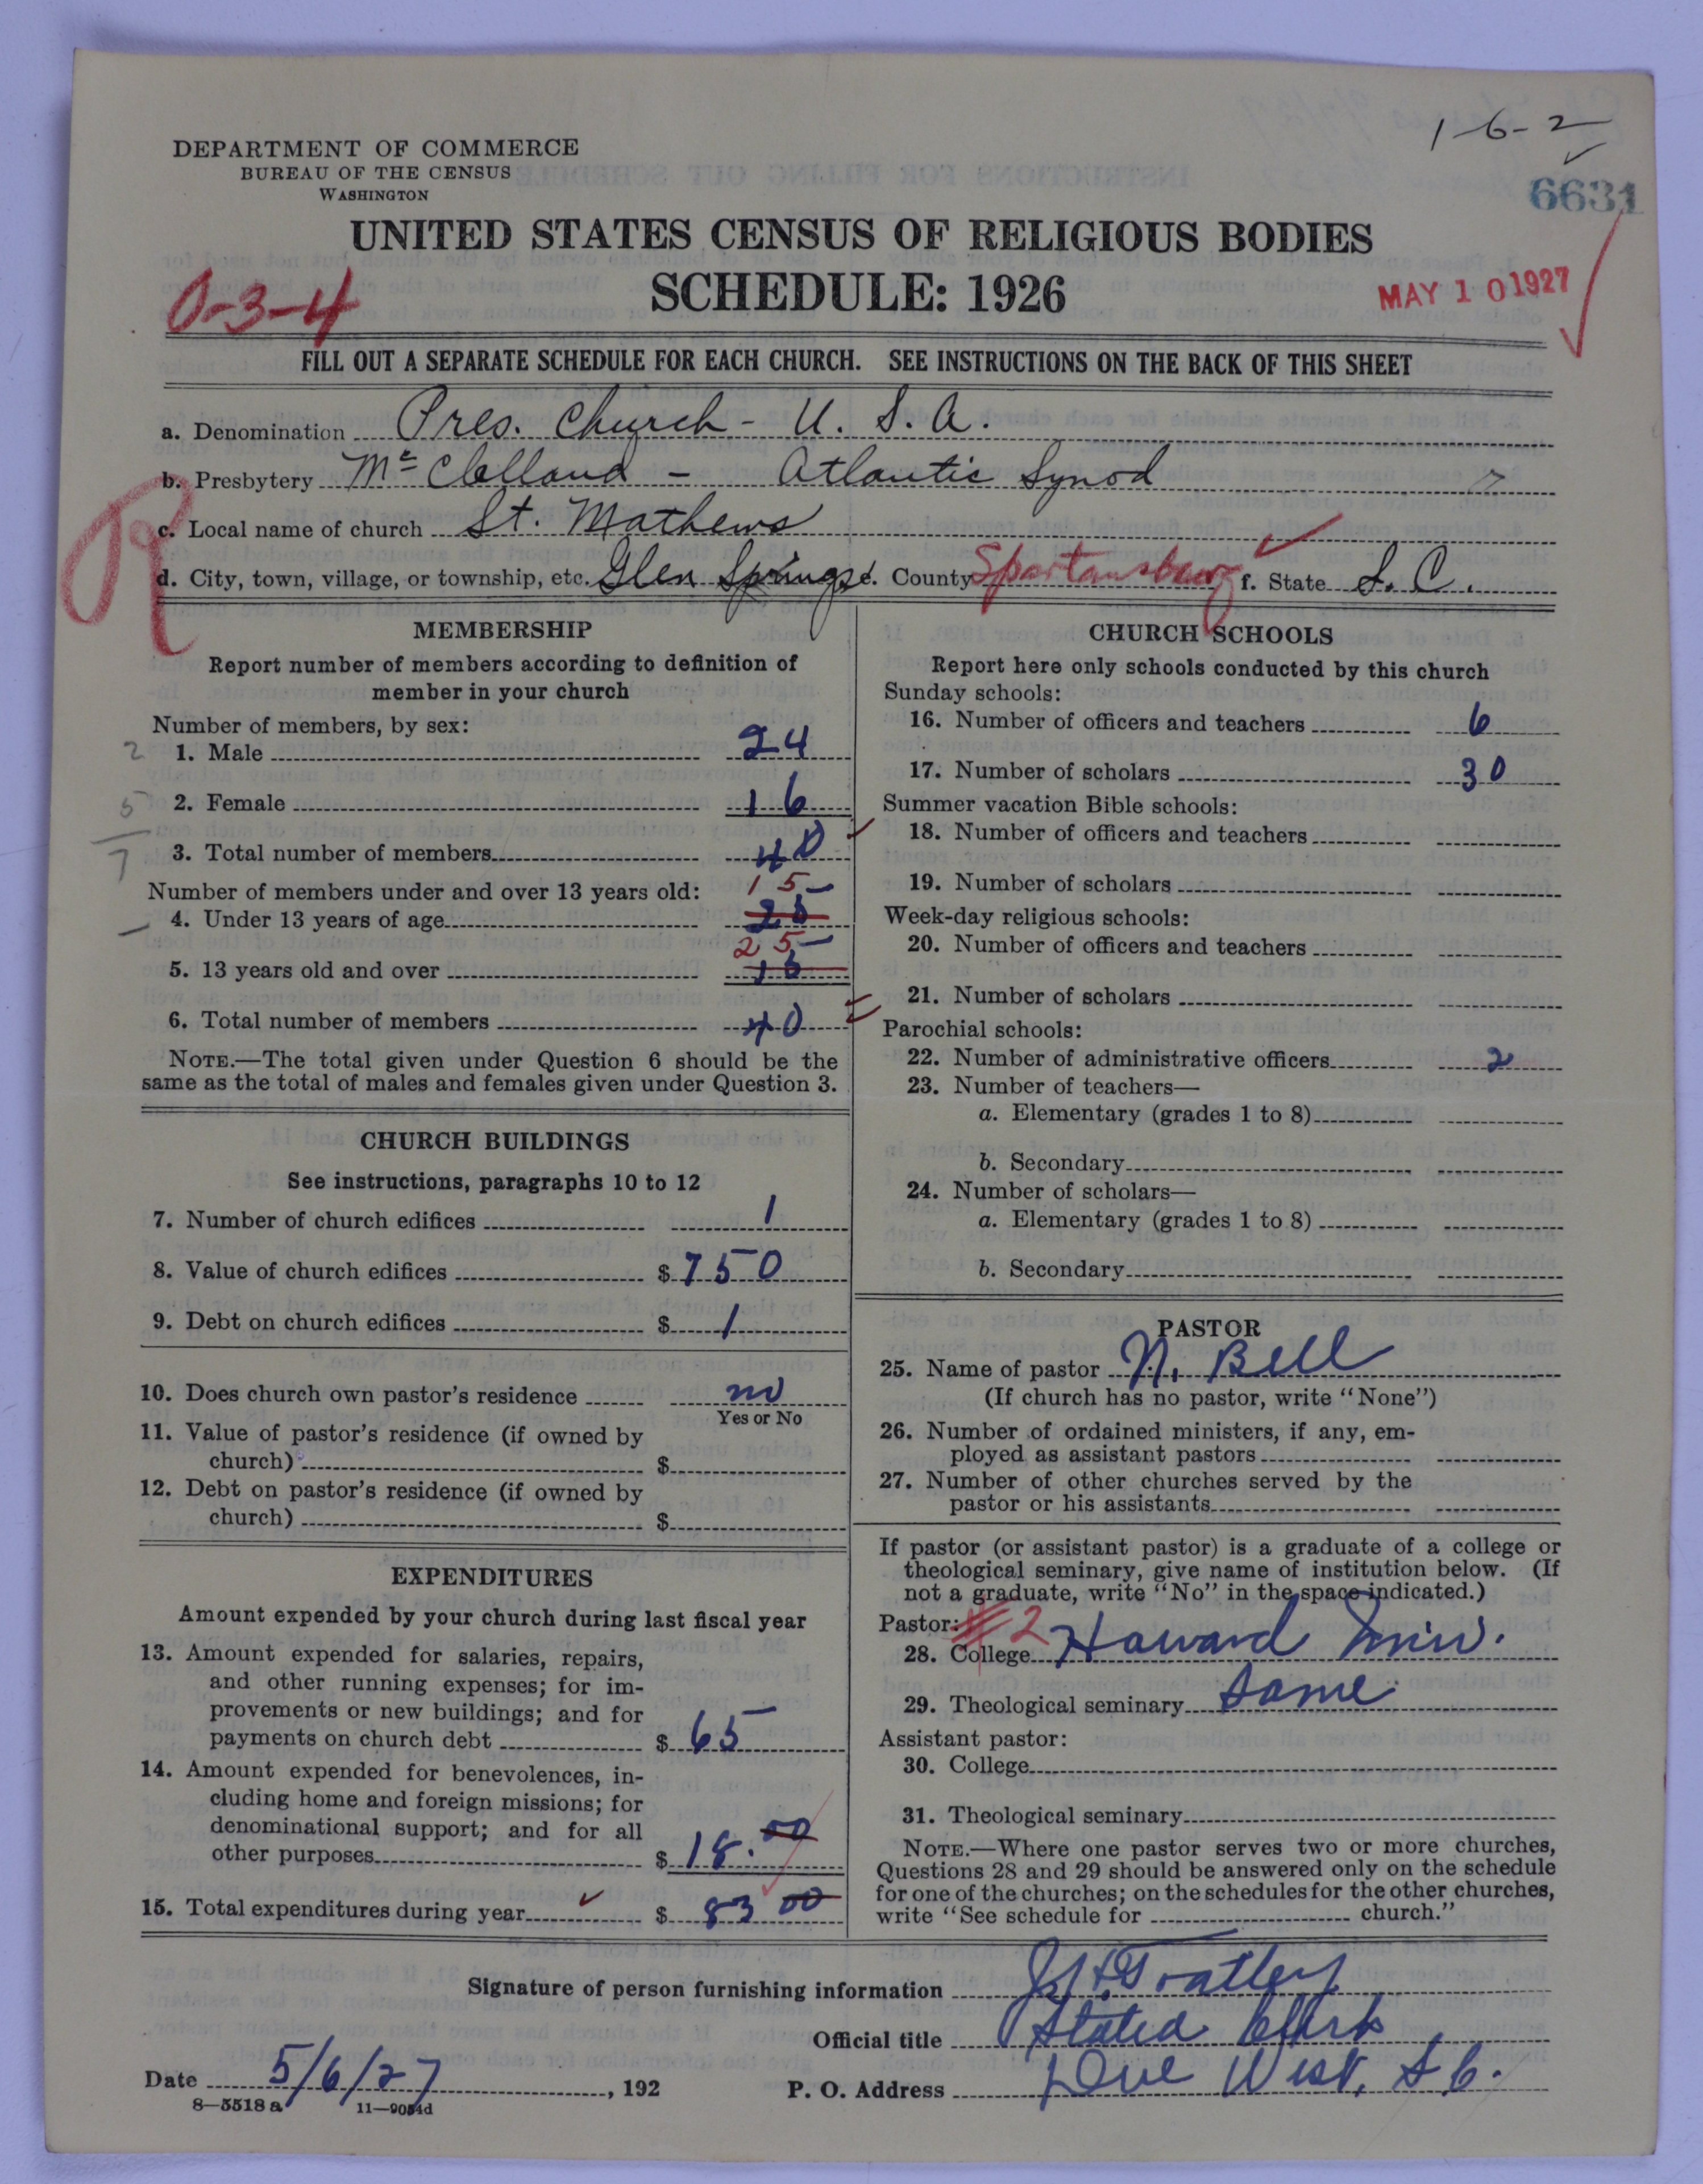 1-6-2
DEPARTMENT OF COMMERCE
BUREAU OF THE CENSUS
WASHINGTON
6631
UNITED STATES CENSUS OF RELIGIOUS BODIES
SCHEDULE: 1926
0-3-4
MAY 10 1927
FILL OUT A SEPARATE SCHEDULE FOR EACH CHURCH. SEE INSTRUCTIONS ON THE BACK OF THIS SHEET
a. Denomination Pres. Church - U. S. A.
b. Presbytery Mc Clelland - Atlantic Synod
R
c. Local name of church St. Mathews
d. City, town, village, or township, etc. Glen Springs e. County Spartansburg f. State S. C.
MEMBERSHIP
Report number of members according to definition of
member in your church
Number of members, by sex:
2 1. Male 24
5 2. Female 16
7 3. Total number of members 40
Number of members under and over 13 years old:
15
4. Under 13 years of age 25
25
5. 13 years old and over 15
6. Total number of members 40
NOTE.—The total given under Question 6 should be the
same as the total of males and females given under Question 3.
CHURCH BUILDINGS
See instructions, paragraphs 10 to 12
7. Number of church edifices 1
8. Value of church edifices $ 750
9. Debt on church edifices $ 1
10. Does church own pastor's residence no
Yes or No
11. Value of pastor's residence (if owned by
church) $
12. Debt on pastor's residence (if owned by
church) $
EXPENDITURES
Amount expended by your church during last fiscal year
13. Amount expended for salaries, repairs,
and other running expenses; for im-
provements or new buildings; and for
payments on church debt $ 65
14. Amount expended for benevolences, in-
cluding home and foreign missions; for
denominational support; and for all
other purposes $ 18.00
15. Total expenditures during year $ 83 00
CHURCH SCHOOLS
Report here only schools conducted by this church
Sunday schools:
16. Number of officers and teachers 6
17. Number of scholars 30
Summer vacation Bible schools:
18. Number of officers and teachers
19. Number of scholars
Week-day religious schools:
20. Number of officers and teachers
21. Number of scholars
Parochial schools:
22. Number of administrative officers 2
23. Number of teachers—
a. Elementary (grades 1 to 8)
b. Secondary
24. Number of scholars—
a. Elementary (grades 1 to 8)
b. Secondary
PASTOR
25. Name of pastor N. Bell
(If church has no pastor, write "None")
26. Number of ordained ministers, if any, em-
ployed as assistant pastors
27. Number of other churches served by the
pastor or his assistants
If pastor (or assistant pastor) is a graduate of a college or
theological seminary, give name of institution below. (If
not a graduate, write "No" in the space indicated.)
Pastor: 2
28. College Howard Univ.
29. Theological seminary Same
Assistant pastor:
30. College
31. Theological seminary
NOTE.—Where one pastor serves two or more churches,
Questions 28 and 29 should be answered only on the schedule
for one of the churches; on the schedules for the other churches,
write "See schedule for church."
Signature of person furnishing information
Official title Stated Clerk
Date 5/6/27, 192 P. O. Address Due West, S. C.
8—5518 a 11—9054d